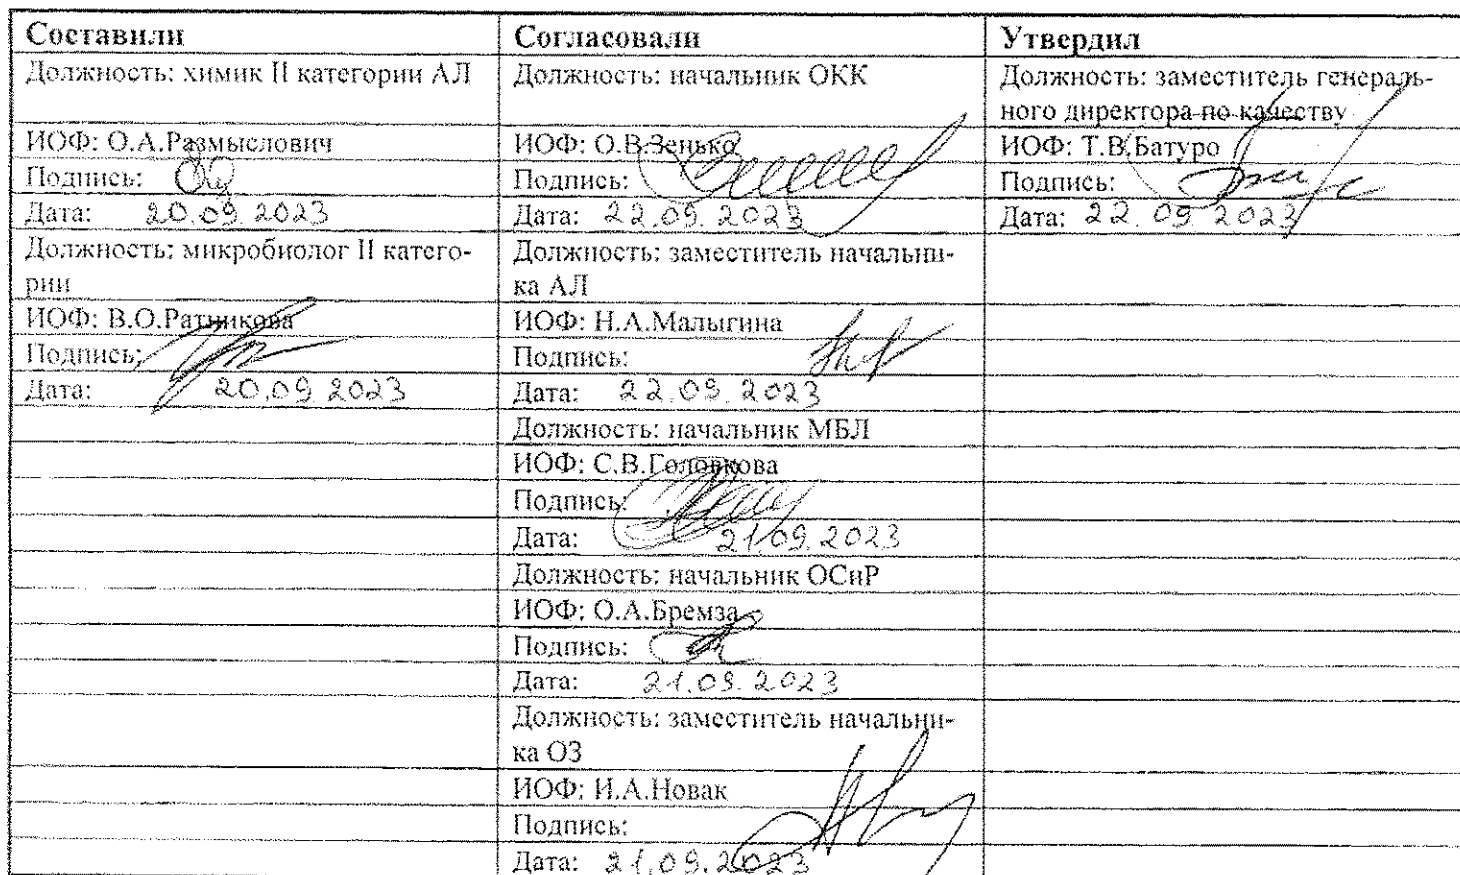 Составили
Согласовали
Утвердил
Должность: химик II категории АЛ
Должность: начальник ОКК
Должность: заместитель генераль-
ного директора по качеству
ИОФ: О.А.Размыслович
ИОФ: О.В.Зенько
ИОФ: Т.В.Батуро
Подпись:
Подпись:
Подпись:
Дата: 20.09.2023
Дата: 22.09.2023
Дата: 22.09.2023
Должность: микробиолог II катего-
рии
Должность: заместитель начальни-
ка АЛ
ИОФ: В.О.Ратникова
ИОФ: Н.А.Малыгина
Подпись:
Подпись:
Дата: 20.09.2023
Дата: 22.09.2023
Должность: начальник МБЛ
ИОФ: С.В.Головкова
Подпись:
Дата: 21.09.2023
Должность: начальник ОСиР
ИОФ: О.А.Бремза
Подпись:
Дата: 21.09.2023
Должность: заместитель начальни-
ка ОЗ
ИОФ: И.А.Новак
Подпись:
Дата: 21.09.2023